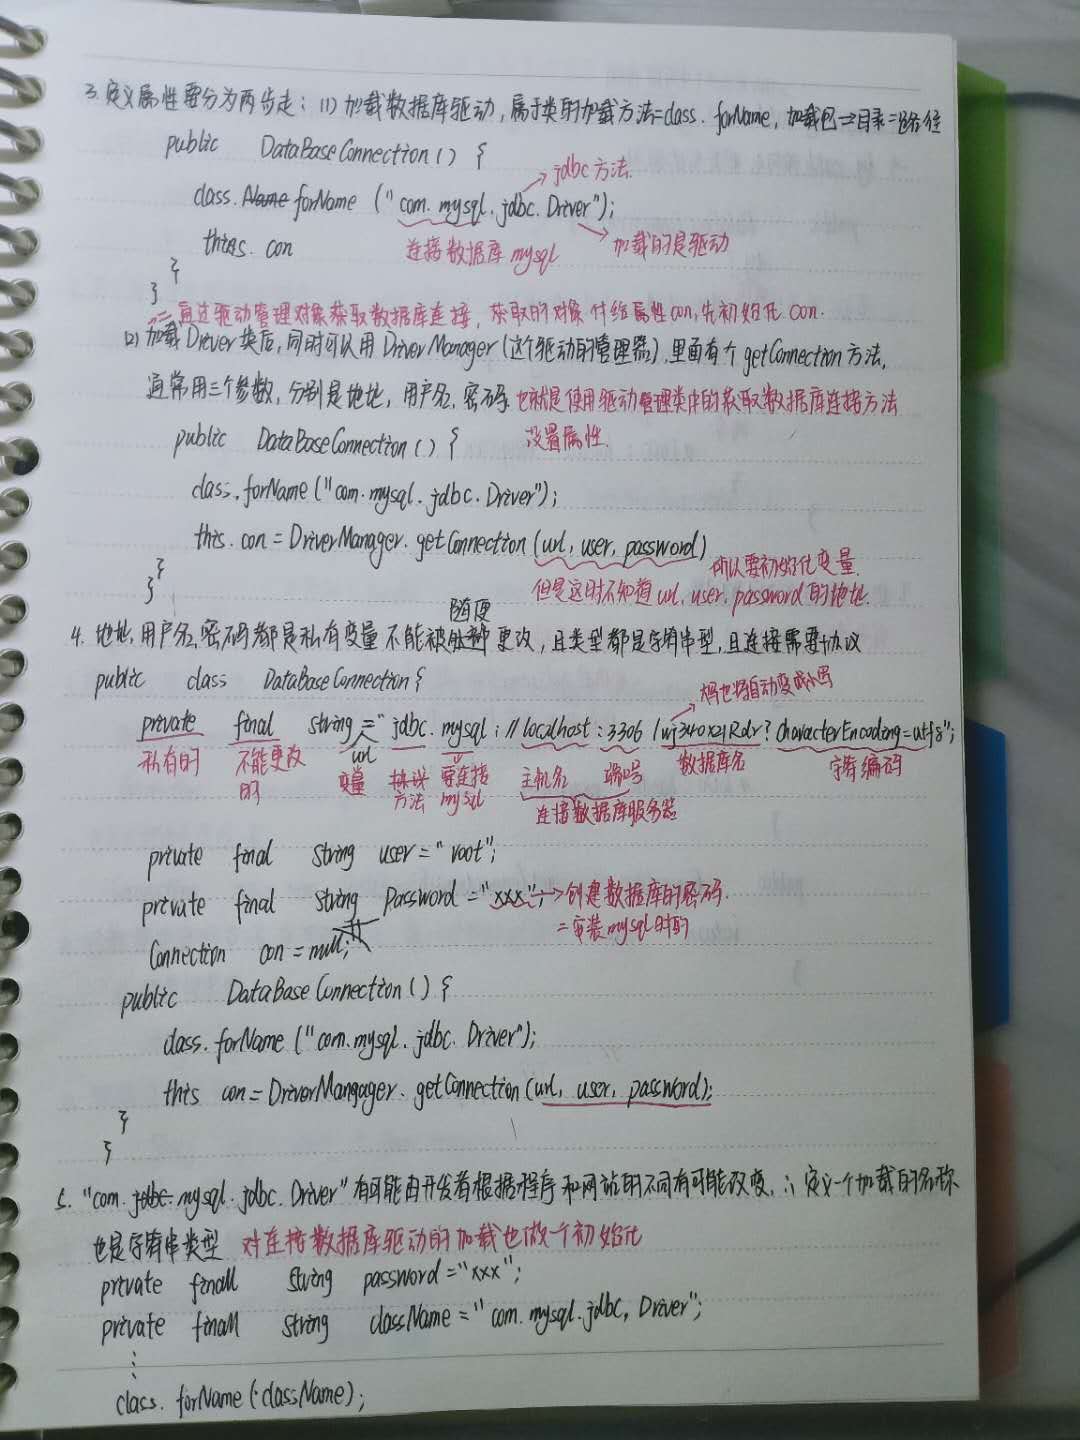 3.定义属性要分为两步走：(1)加载数据库驱动，属于类的加载方法=class.forName，加载包⇒目录=路径
public DataBaseConnection() {
→jdbc方法.
class.forName ("com.mysql.jdbc.Driver");
this.con 连接数据库mysql →加载的是驱动
}
}
二通过驱动管理对象获取数据库连接，获取的对象付给属性con,先初始化con.
(2)加载Driver类后，同时可以用DriverManager(这个驱动的管理器),里面有个getConnection方法,
通常用三个参数，分别是地址，用户名，密码.也就是使用驱动管理类中的获取数据库连接方法
设置属性.
public DataBaseConnection() {
class.forName("com.mysql.jdbc.Driver");
this.con = DriverManager.getConnection(url, user, password)
所以要初始化变量.
} 但是这时不知道url, user, password的地址.
}
随便
4.地址,用户名,密码都是私有变量不能被更改，且类型都是字符串型，且连接需要协议
public class DataBaseConnection{
大写也将自动变成小写
private final string = "jdbc.mysql://localhost:3306/wj340x21Rdr?CharacterEncoding=utf8";
url
私有的 不能更改的 变量 方法 要连接mysql 主机名 端口号 数据库名 字符编码
连接数据库服务器
private final string user="root";
private final string Password="xxx"; →创建数据库的密码.
=安装mysql时的
Connection con = null;
public DataBaseConnection() {
class.forName ("com.mysql.jdbc.Driver");
this con=DriverMangager.getConnection(url, user, password);
}
}
5."com.mysql.jdbc.Driver"有可能由开发者根据程序和网站的不同有可能改变,∴定义一个加载的名称
也是字符串类型 对连接数据库驱动的加载也做一个初始化
private finall string password="xxx";
private finall string className="com.mysql.jdbc,Driver";
⋮
class.forName(className);